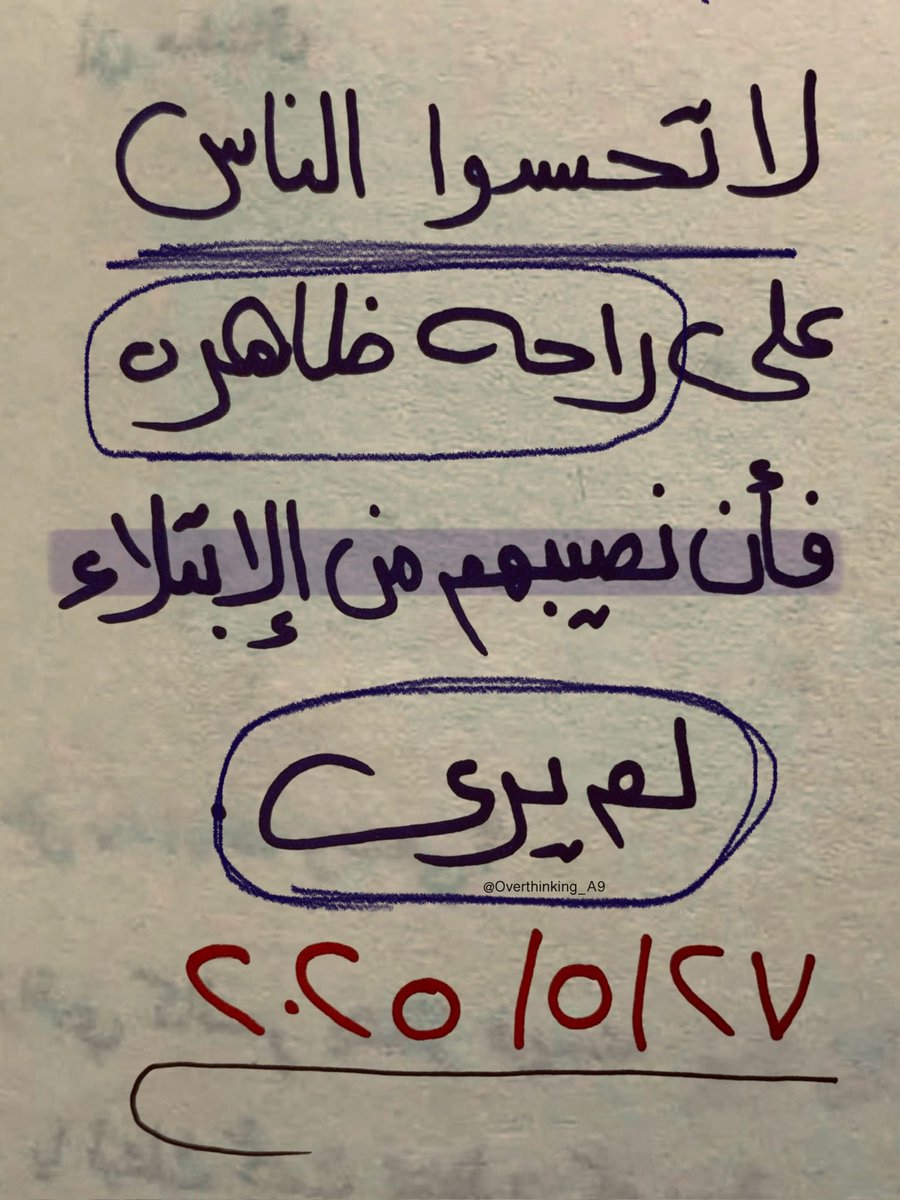 لا تحسسوا الناس
على راحه ظاهره
فأن نصيبهم من الإبتلاء
لم يرى
@Overthinking_A9
٢٠٢٥/٥/٢٧